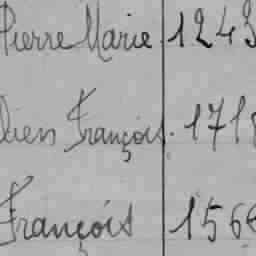 Pierre Marie. 1243
François. 1718
François 156